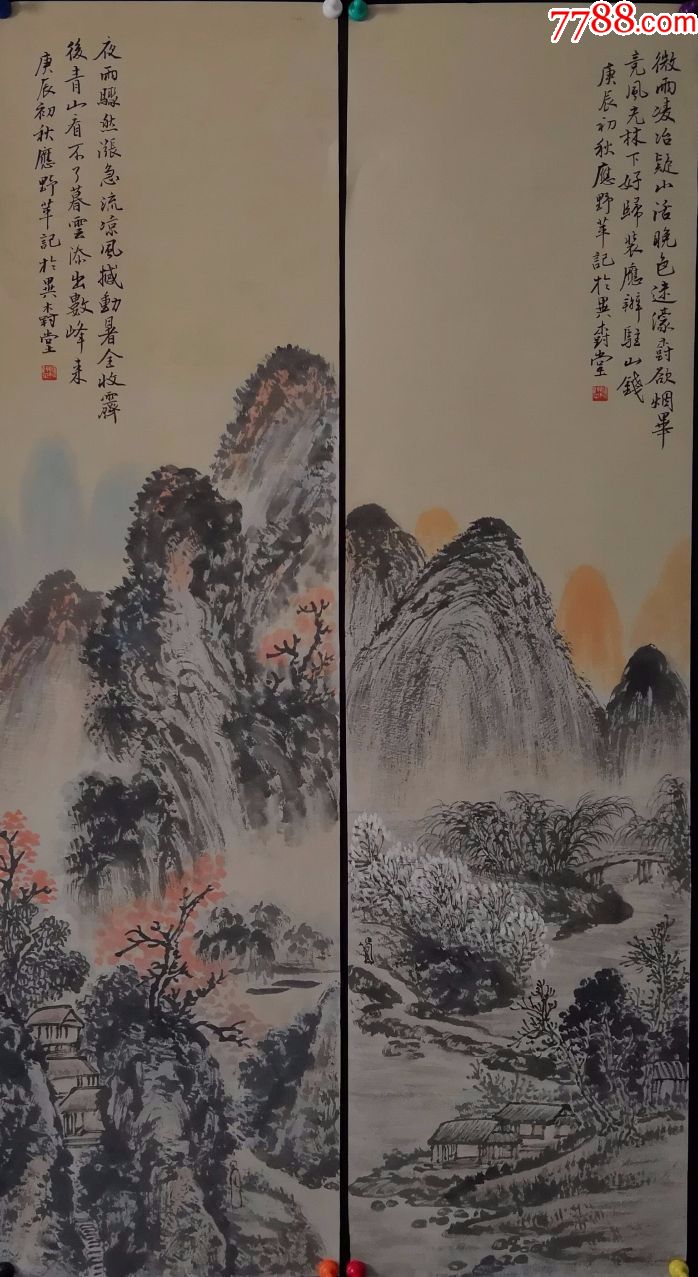 7788.com
微雨凌冶疑山活晚色迷濛尌欲烟畢
竟風光林下好歸裝應辦駐山錢
庚辰初秋應野苹記於異尌堂
夜雨驟然漲急流凉風撼動暑全收霽
後青山看不了暮雲添出數峰來
庚辰初秋應野苹記於異尌堂